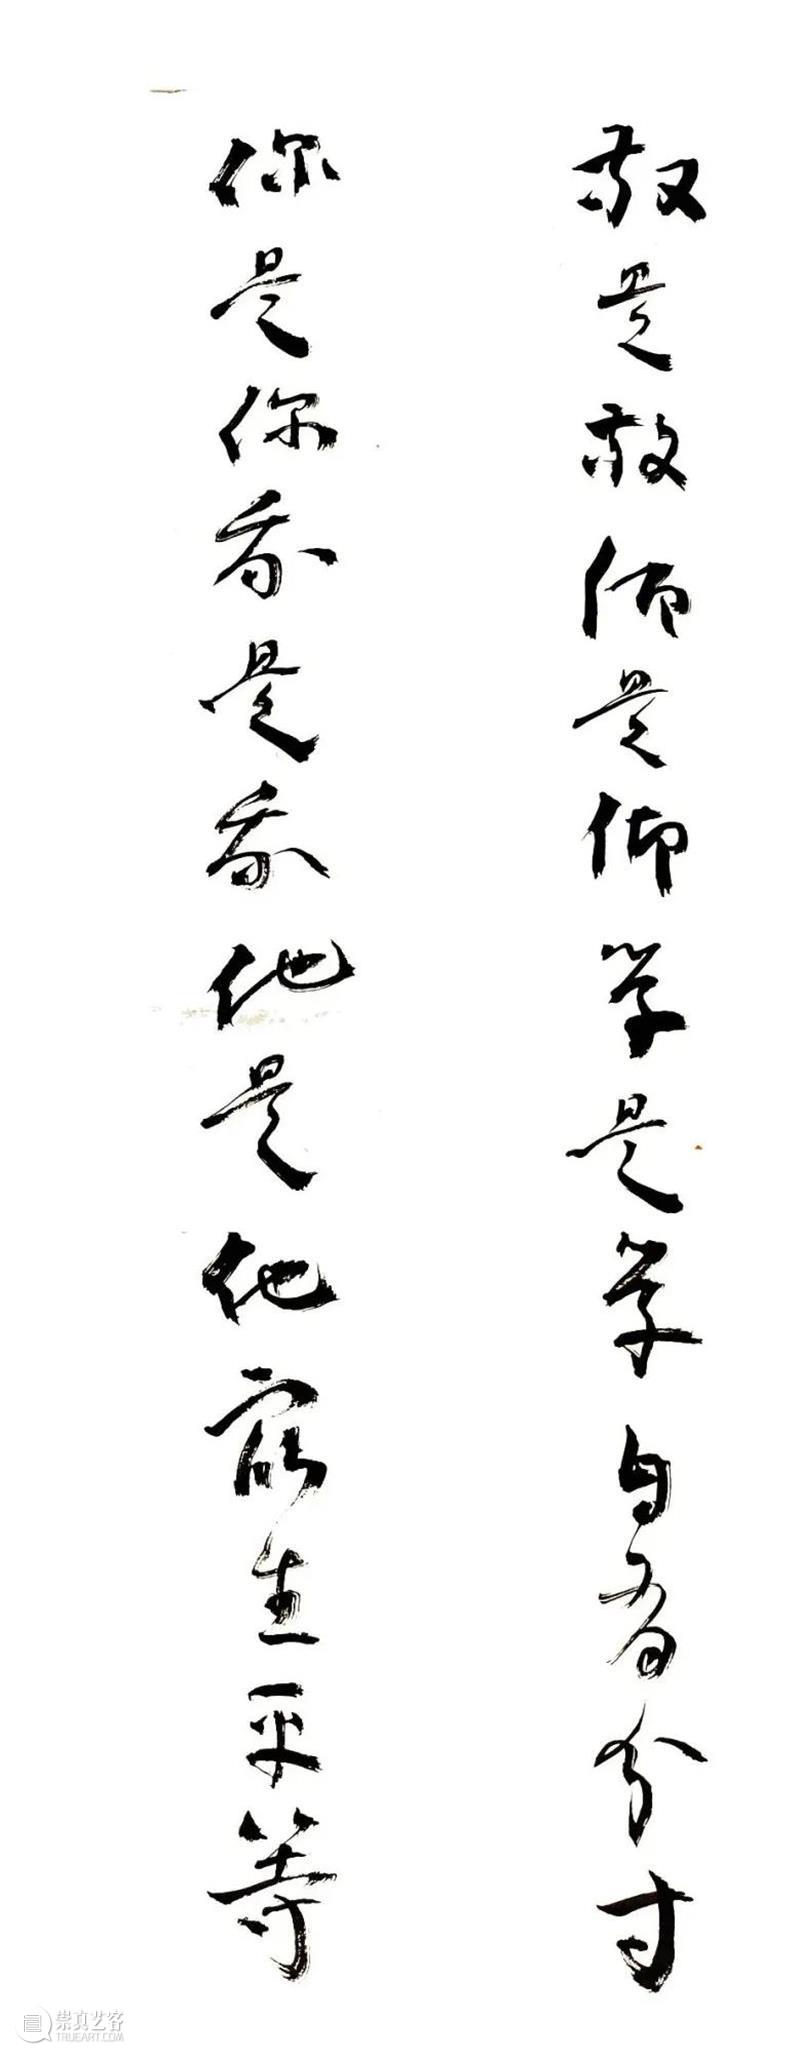 敬是敬仰是仰学是学自有分寸
你是你我是我他是他众生平等
崇真艺客
TRUEART.COM